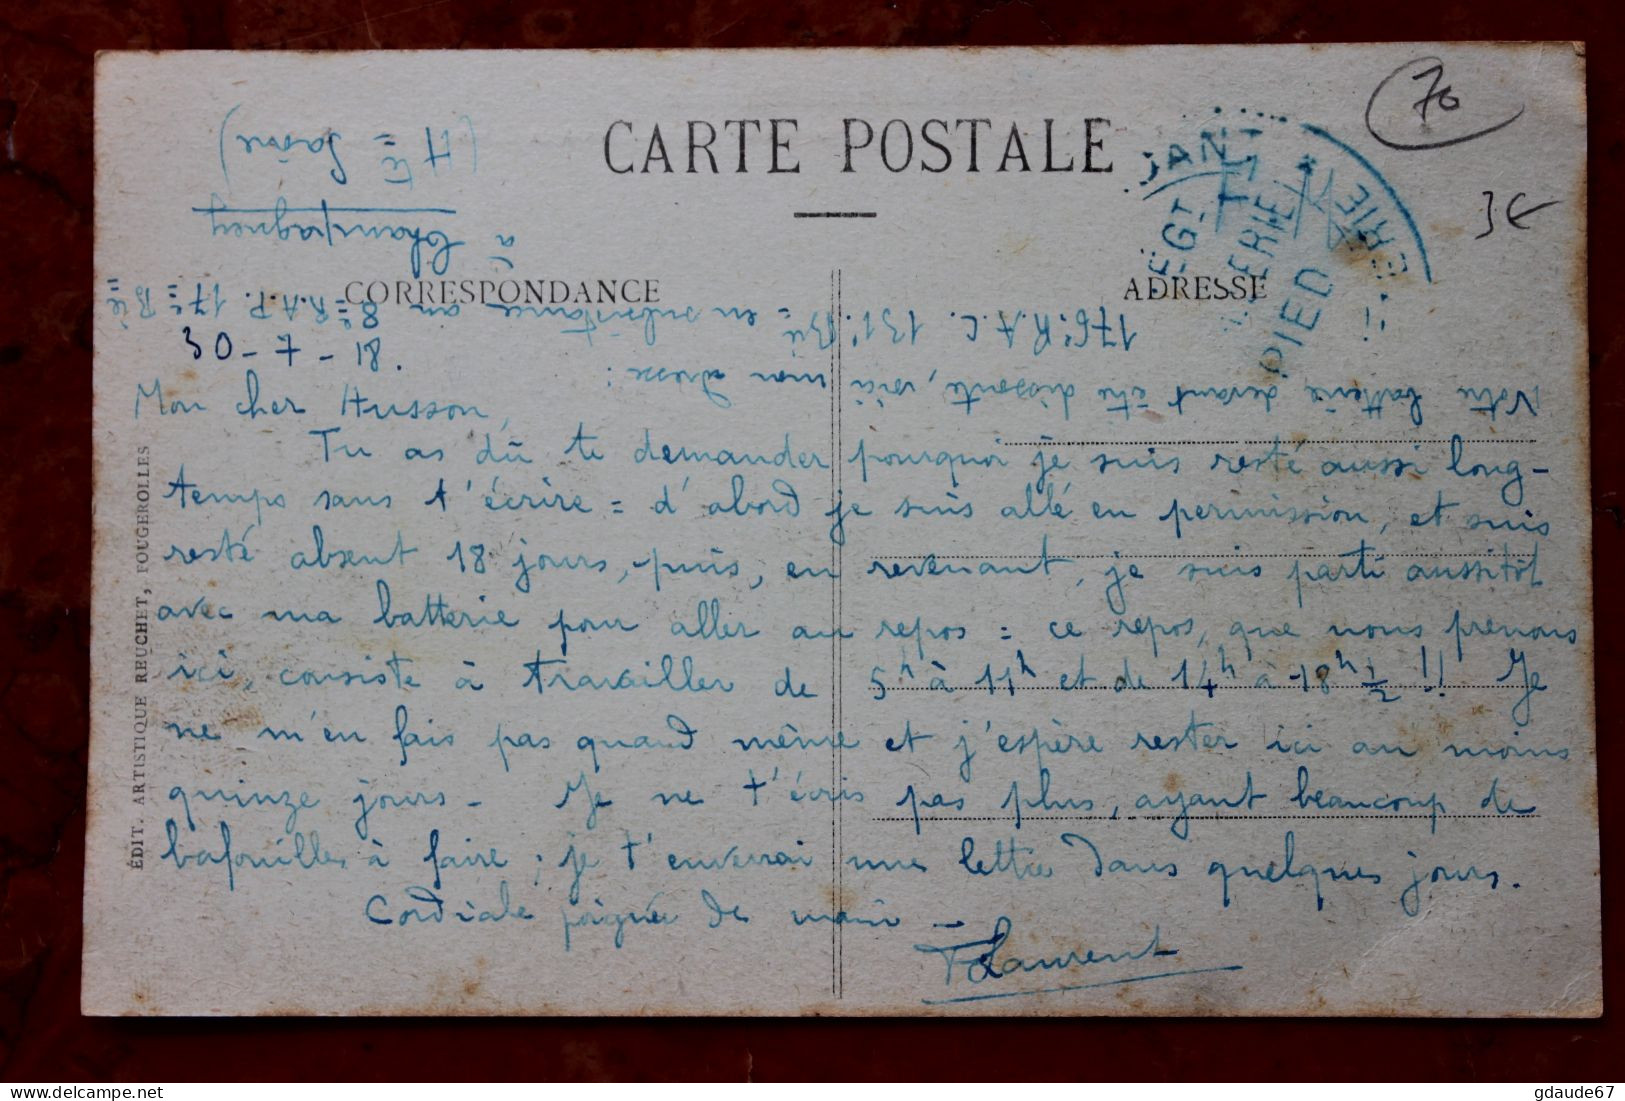 CARTE POSTALE
CORRESPONDANCE
ADRESSE
70
3€
PIED
à Champagney
(Hte Saône)
30-7-18.
Mon cher Husson,
Tu as dû te demander pourquoi je suis resté aussi long-
temps sans t'écrire = d'abord je suis allé en permission, et suis
resté absent 18 jours, puis, en revenant, je suis parti aussitôt
avec ma batterie pour aller au repos = ce repos, que nous prenons
ici, consiste à travailler de 5h à 11h et de 14h à 18h 1/2 !! Je
ne m'en fais pas quand même et j'espère rester ici au moins
quinze jours - Je ne t'écris pas plus, ayant beaucoup de
bafouilles à faire ; je t'enverrai une lettre dans quelques jours.
Cordiale poignée de main -
Laurent
Notre batterie devant être dissoute, voici mon adresse :
176e R.A.C. 131e Bie = en subsistance au
8e = R.A.P. 17e = Bie
ÉDIT. ARTISTIQUE REUCHET, FOUGEROLLES
delcampe.net
gdaude67